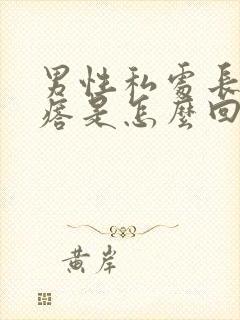 男性私處長
痞是怎麼回
黃岸